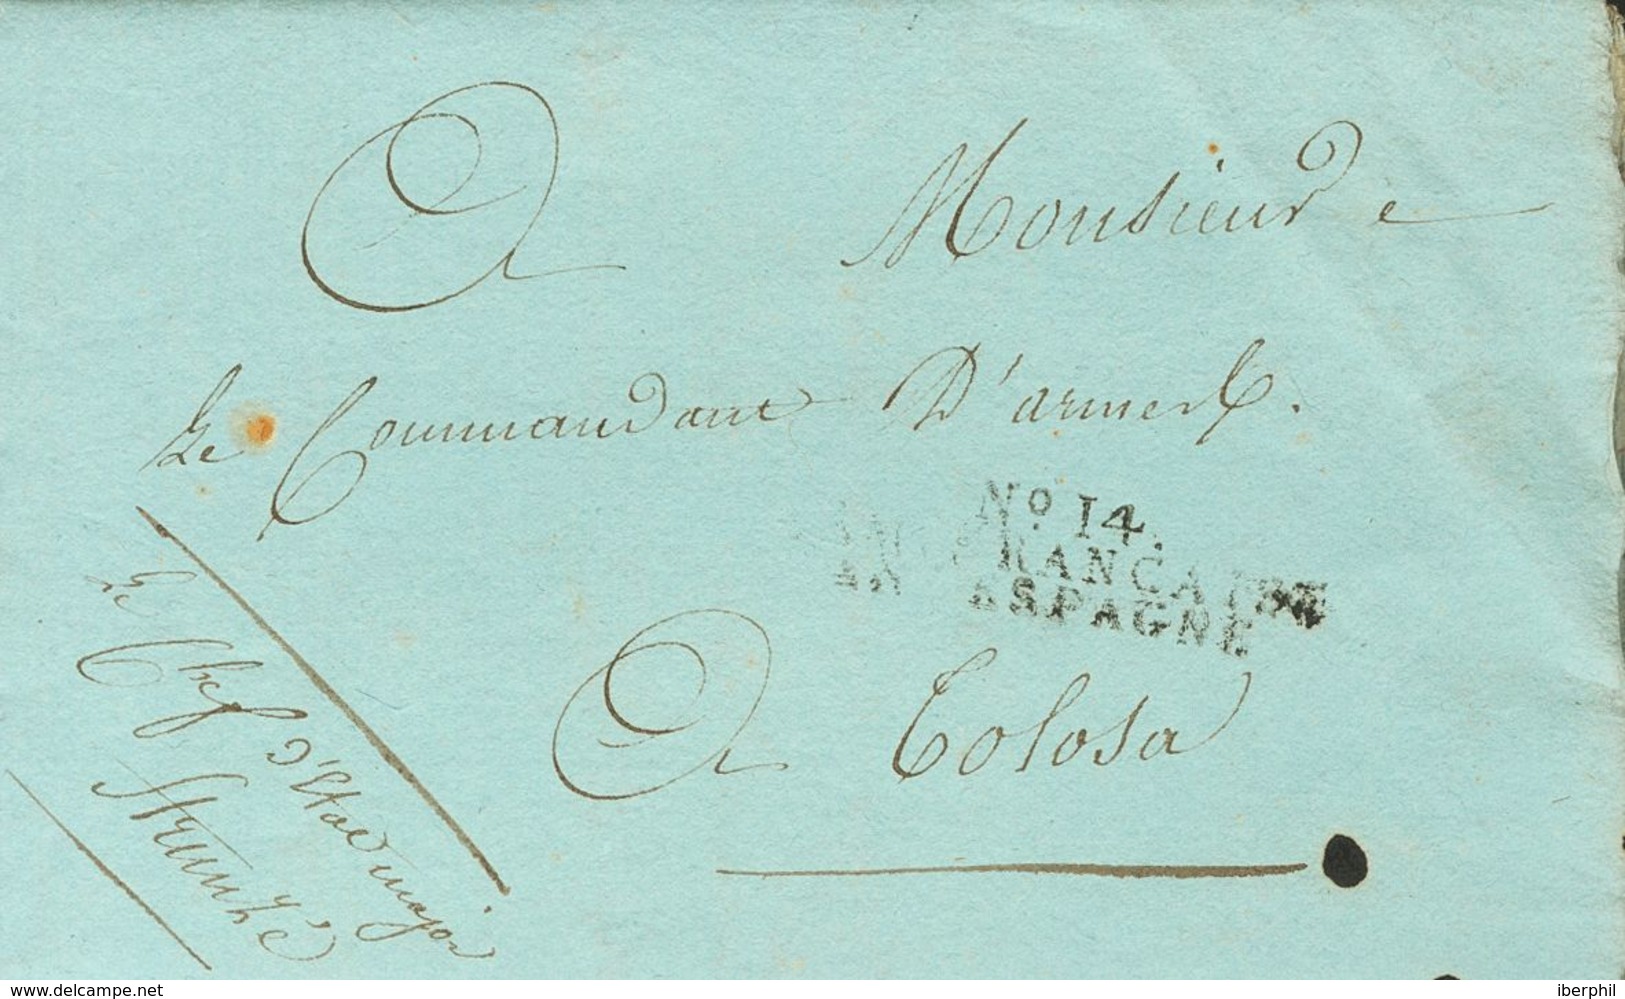 A Monsieur
Le Commandant D'armes
No. 14.
FRANCAISE
ESPAGNE
A Tolosa
Le Chef d'Etat major
www.delcampe.net
iberphil